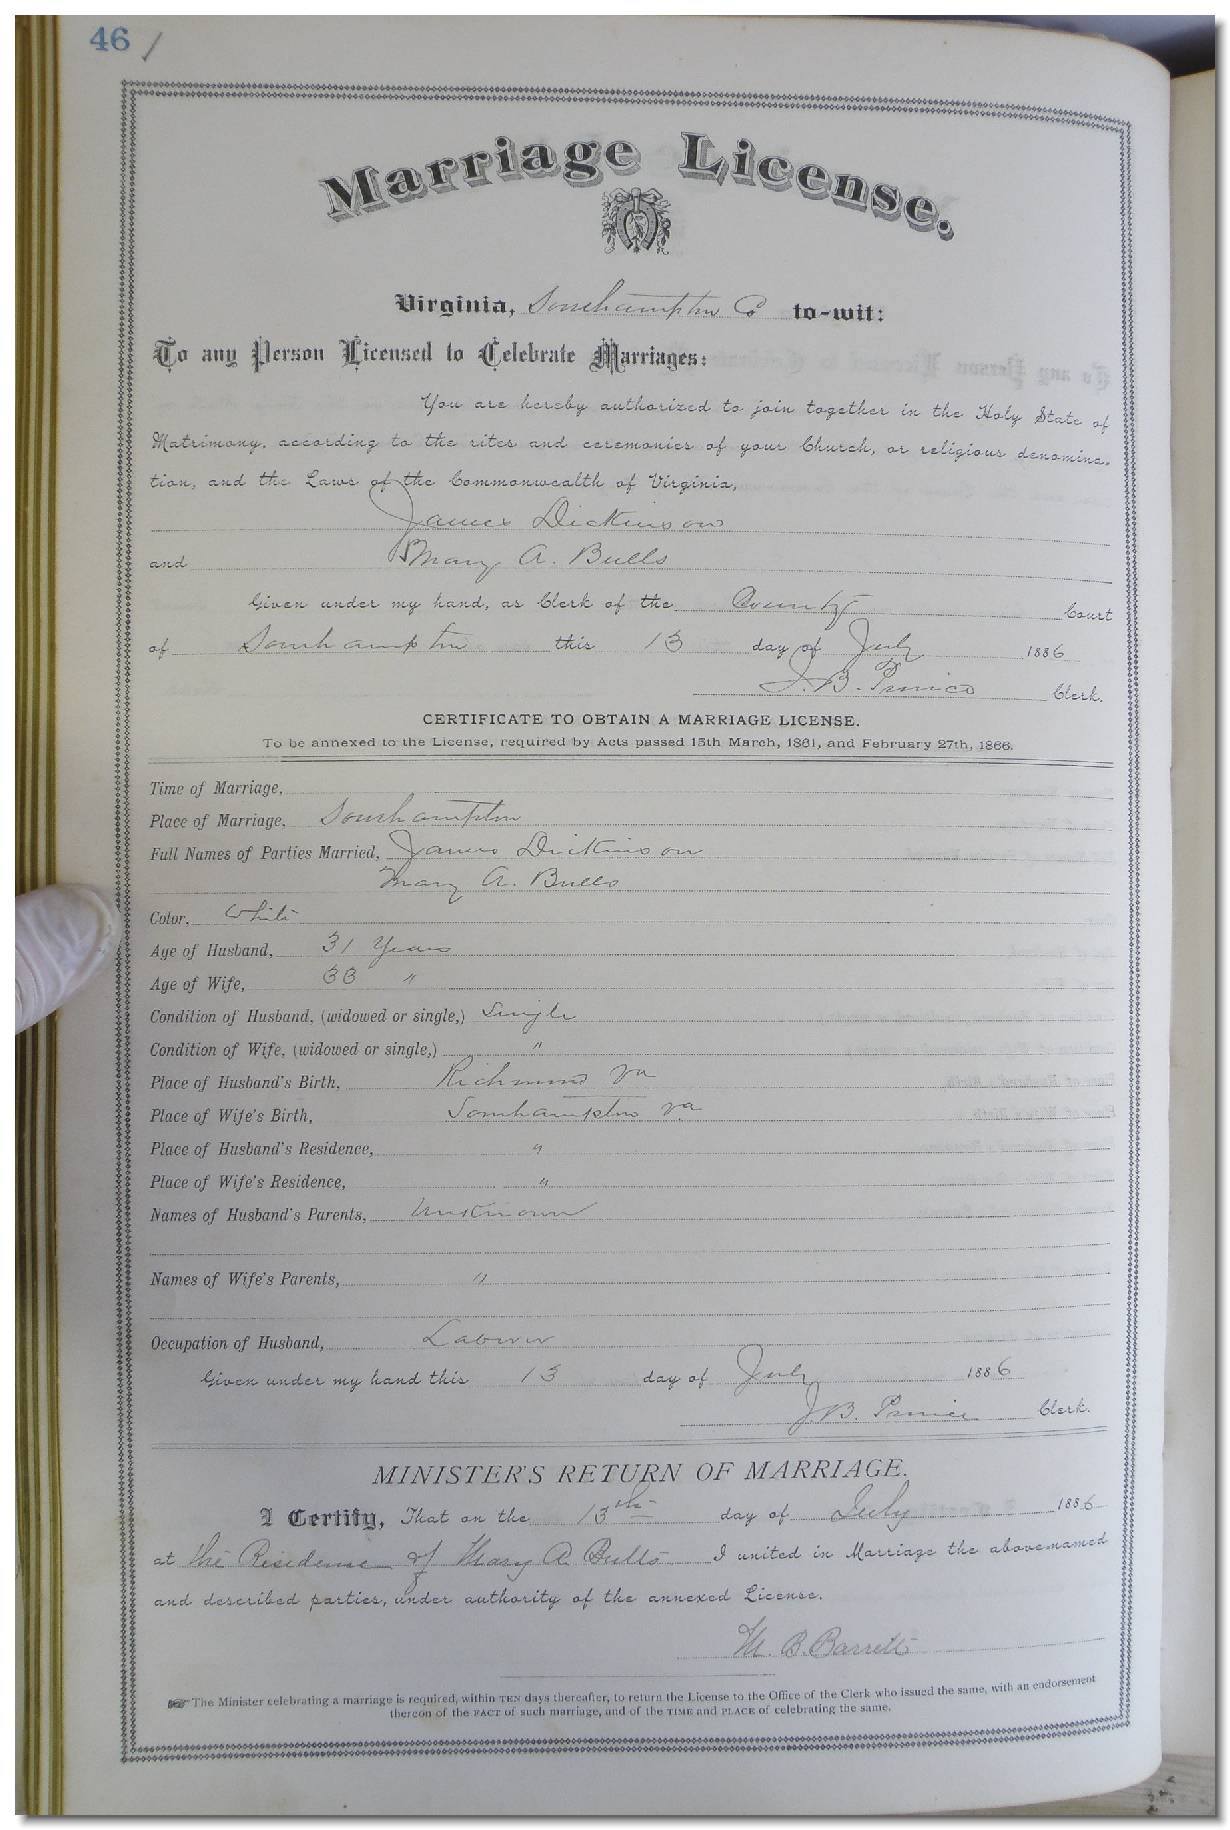 46
Marriage License.
Virginia, Southampton Co to-wit:
To any Person Licensed to Celebrate Marriages:
You are hereby authorized to join together in the Holy State of
Matrimony, according to the rites and ceremonies of your Church, or religious denomina-
tion, and the Laws of the Commonwealth of Virginia,
James Dickinson
and Mary A. Bulls
Given under my hand, as Clerk of the County Court
of Southampton this 13 day of July 1886
J. B. Prince Clerk.
CERTIFICATE TO OBTAIN A MARRIAGE LICENSE.
To be annexed to the License, required by Acts passed 15th March, 1861, and February 27th, 1866.
Time of Marriage,
Place of Marriage, Southampton
Full Names of Parties Married, James Dickinson
Mary A. Bulls
Color, White
Age of Husband, 31 Years
Age of Wife, 33 "
Condition of Husband, (widowed or single,) Single
Condition of Wife, (widowed or single,) "
Place of Husband's Birth, Richmond Va
Place of Wife's Birth, Southampton Va
Place of Husband's Residence, "
Place of Wife's Residence, "
Names of Husband's Parents, Unknown
Names of Wife's Parents, "
Occupation of Husband, Laborer
Given under my hand this 13 day of July 1886
J. B. Prince Clerk.
MINISTER'S RETURN OF MARRIAGE.
I Certify, That on the 13th day of July 1886
at the Residence of Mary A. Bulls I united in Marriage the above-named
and described parties, under authority of the annexed License.
M. B. Barrett
☞ The Minister celebrating a marriage is required, within TEN days thereafter, to return the License to the Office of the Clerk who issued the same, with an endorsement
thereon of the FACT of such marriage, and of the TIME and PLACE of celebrating the same.